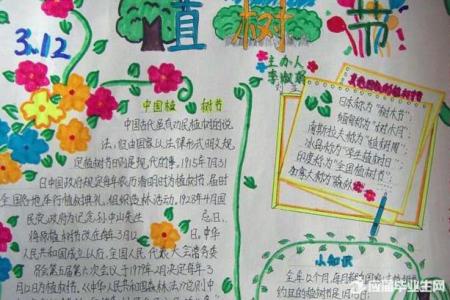 3.12
植树节
主办人
中国植树节
中国古代虽有功民植树的说
法,但由国家以法律形式明文规
定植树节日则是现代的事,1915年7月31
日中国政府规定每年农历清明为植树节,届时
全国各地举行植树典礼,组织造林活动,1928年4月
民党政府为记念孙中山先生忌日,
将原植树节改在每年3月12日,中华
人民共和国成立以后,全国人民代表大会常务委
员会第五届第六次会议于1979年2月决定每年3月
日为植树节,《中华人民共和国森林法》
日本称为"树木节"
缅甸称为"树木月"
南斯拉夫称为"植树周"
冰岛称为"学生植树日"
印度称为"全国植树节"
加拿大称为
小知识
全年12个月,每月
应届毕业生网